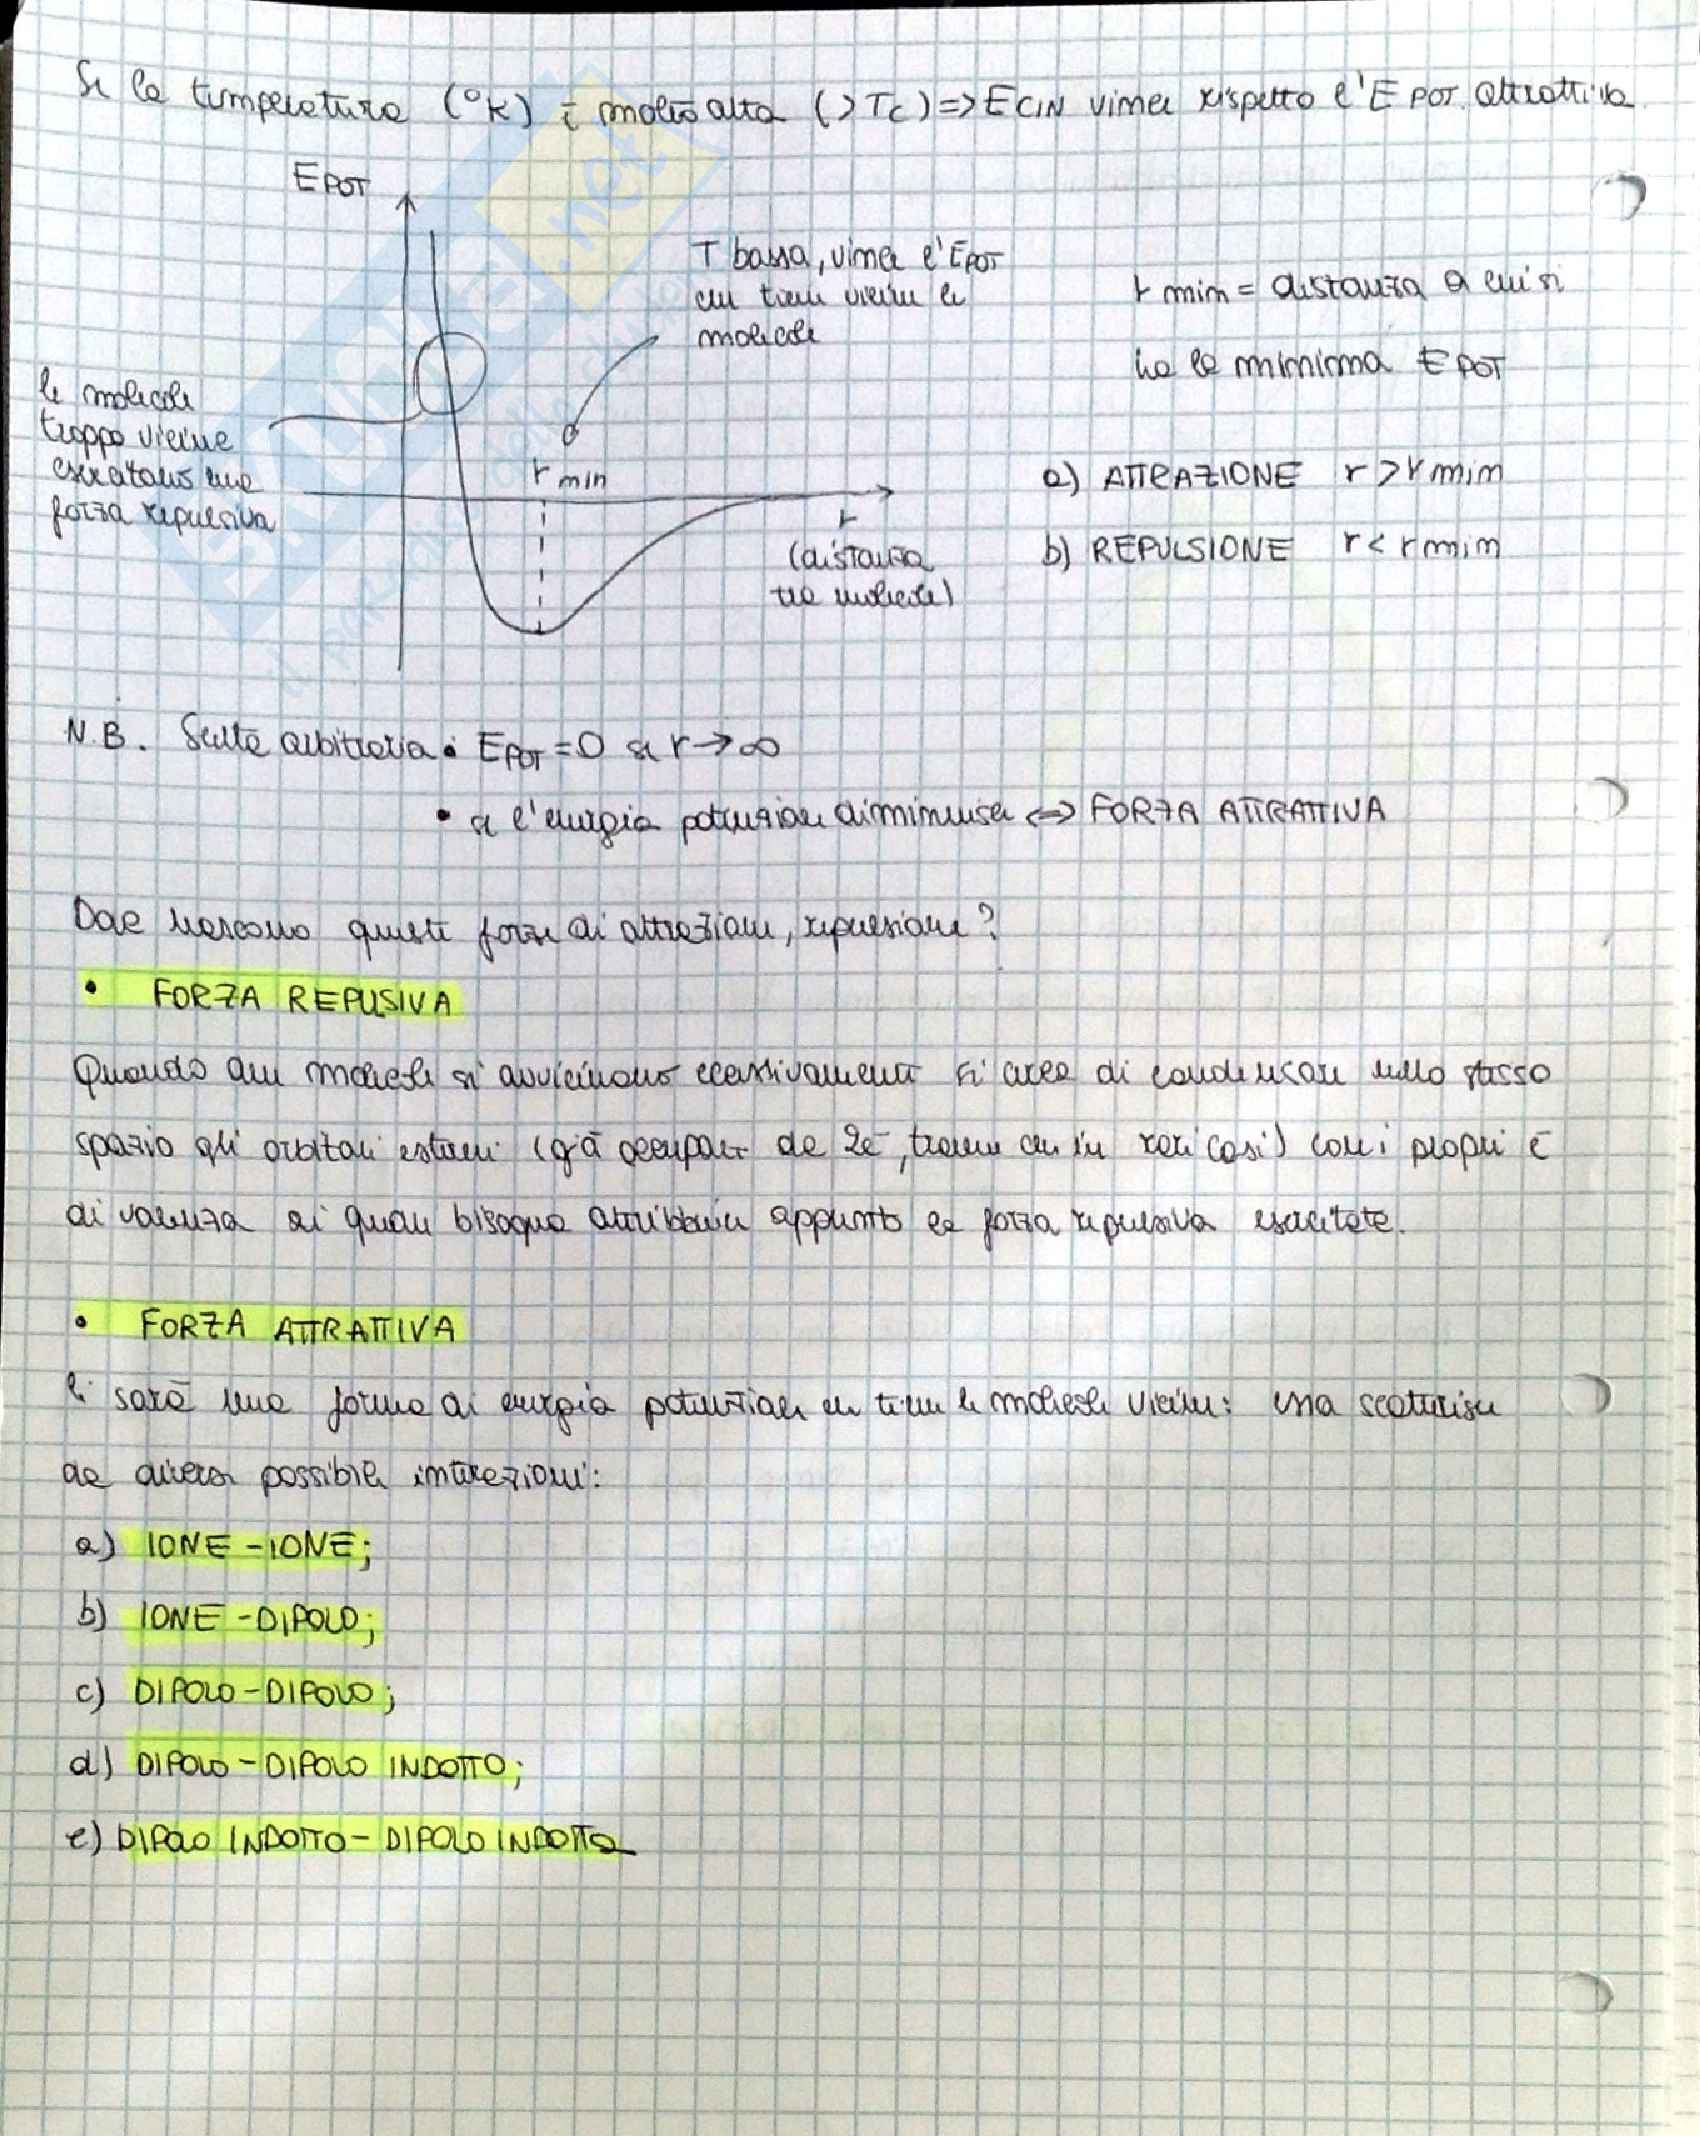 Se la temperatura (°K) è molto alta (>Tc) => E CIN vince rispetto l'E POT. attrattiva
E POT
T bassa, vince l'E POT
che tiene vicine le
molecole
r min = distanza a cui si
ha la minima E POT
le molecole
troppo vicine
esercitano una
forza repulsiva
r min
r
(distanza
tra molecole)
a) ATTRAZIONE r > r min
b) REPULSIONE r < r min
N.B. Scelta arbitraria • E POT = 0 se r → ∞
• se l'energia potenziale diminuisce <=> FORZA ATTRATTIVA
Dove nascono queste forze di attrazione, repulsione?
• FORZA REPUSIVA
Quando due molecole si avvicinano eccessivamente si cerca di condensare nello stesso
spazio gli orbitali esterni (già occupati da 2e⁻, tranne che in rari casi) con i propri e⁻
di valenza ai quali bisogna attribuire appunto la forza repulsiva esercitata.
• FORZA ATTRATTIVA
Ci sarà una forma di energia potenziale che tiene le molecole vicine: essa scaturisce
da diverse possibili interazioni:
a) IONE - IONE;
b) IONE - DIPOLO;
c) DIPOLO - DIPOLO;
d) DIPOLO - DIPOLO INDOTTO;
e) DIPOLO INDOTTO - DIPOLO INDOTTO
skuola.net